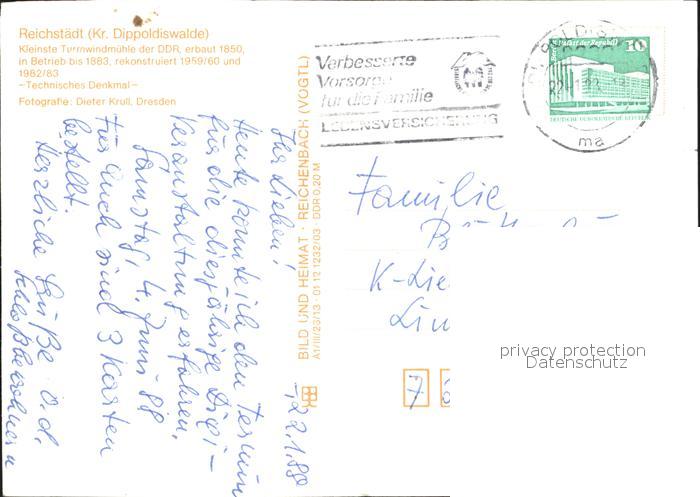 Reichstädt (Kr. Dippoldiswalde)
Kleinste Turmwindmühle der DDR, erbaut 1850,
in Betrieb bis 1883, rekonstruiert 1959/60 und
1982/83
—Technisches Denkmal—
Fotografie: Dieter Krull, Dresden
BILD UND HEIMAT · REICHENBACH (VOGTL)
A1/III/26/13 · 01 12 1232/03 · DDR 0,20 M
Verbesserte
Vorsorge
für die Familie
LEBENSVERSICHERUNG
10
DEUTSCHE DEMOKRATISCHE REPUBLIK
ma
22.1.88
Ihr Lieben!
Heute konnte ich den Termin
für die diesjährige Dipi-
Veranstaltung erfahren.
Samstag, 4. Juni 88
Für Euch sind 3 Karten
bestellt.
Herzliche Grüße a. d.
Familie
K-Lie
7
privacy protection
Datenschutz